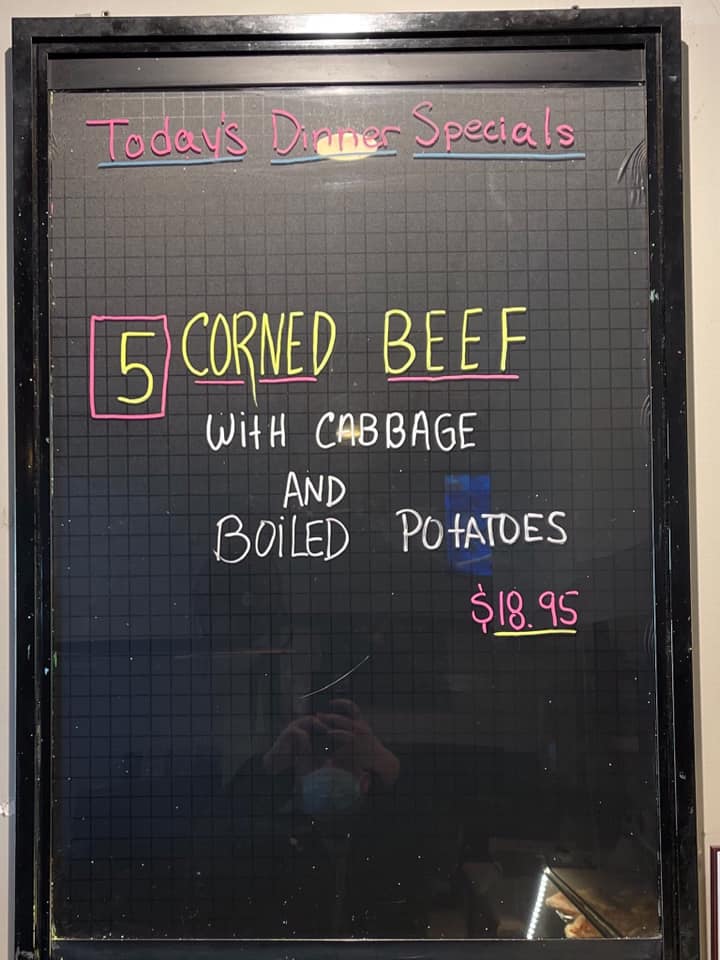 Today's Dinner Specials
5 CORNED BEEF
WitH CABBAGE
AND
BOiLED POtATOES
$18.95